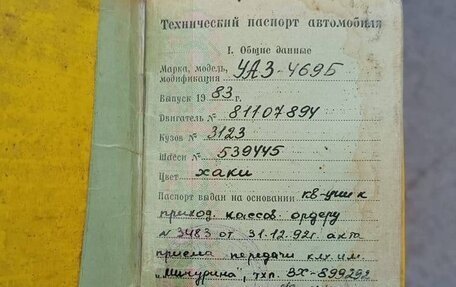 Технический паспорт автомобиля
I. Общие данные
Марка, модель,
модификация УАЗ-469Б
Выпуск 1983 г.
Двигатель № 81107894
Кузов № 3123
Шасси № 539445
Цвет хаки
Паспорт выдан на основании кв-ции к
приход. кассов. ордеру
№ 3483 от 31.12.92г. акта
приема передачи клх им.
"Мичурина", тхп. ВХ-899292